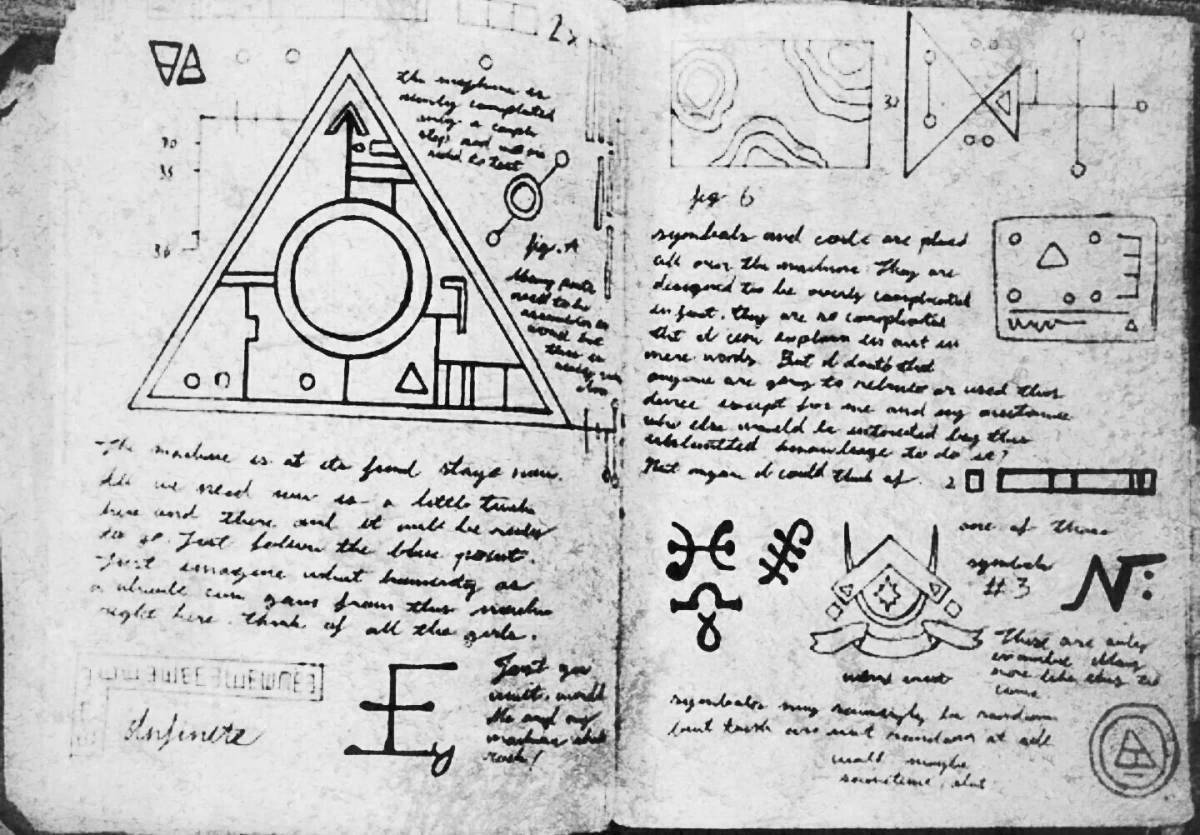 2x
the machine is
nearly completed
only a couple
steps and we
need to test
70
35
36
fig. A
Many parts
need to be
this is
The machine is at its final stage now.
All we need now is a little touch
here and there and it will be ready
to go. Just follow the blue print.
Just imagine what humanity as
a whole can gain from this machine
right here. Think of all the girls.
Infinite
Just you
wait, world
Me and my
machine shall
rock!
32
fig 6
symbols and code are placed
all over the machine. They are
designed to be overly complicated
in fact, they are so complicated
that I can explain in not in
mere words. But I doubt that
anyone are going to rebuild or used this
device except for me and my assistance
who else would be interested by this
knowledge to do it?
Not anyone I could think of.
2
one of those
symbols
#3
N:
These are only
more like they to
come
symbols may seemingly be random
but trust are not random at all
well maybe
sometime, but